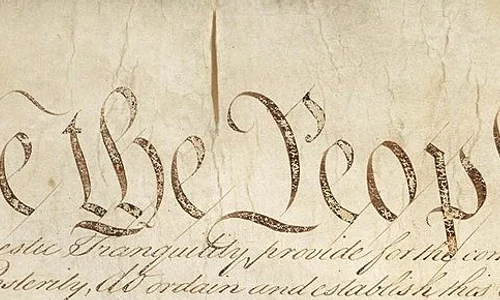 e the Peop
estic Tranquility, provide for the co
Posterity, do ordain and establish this